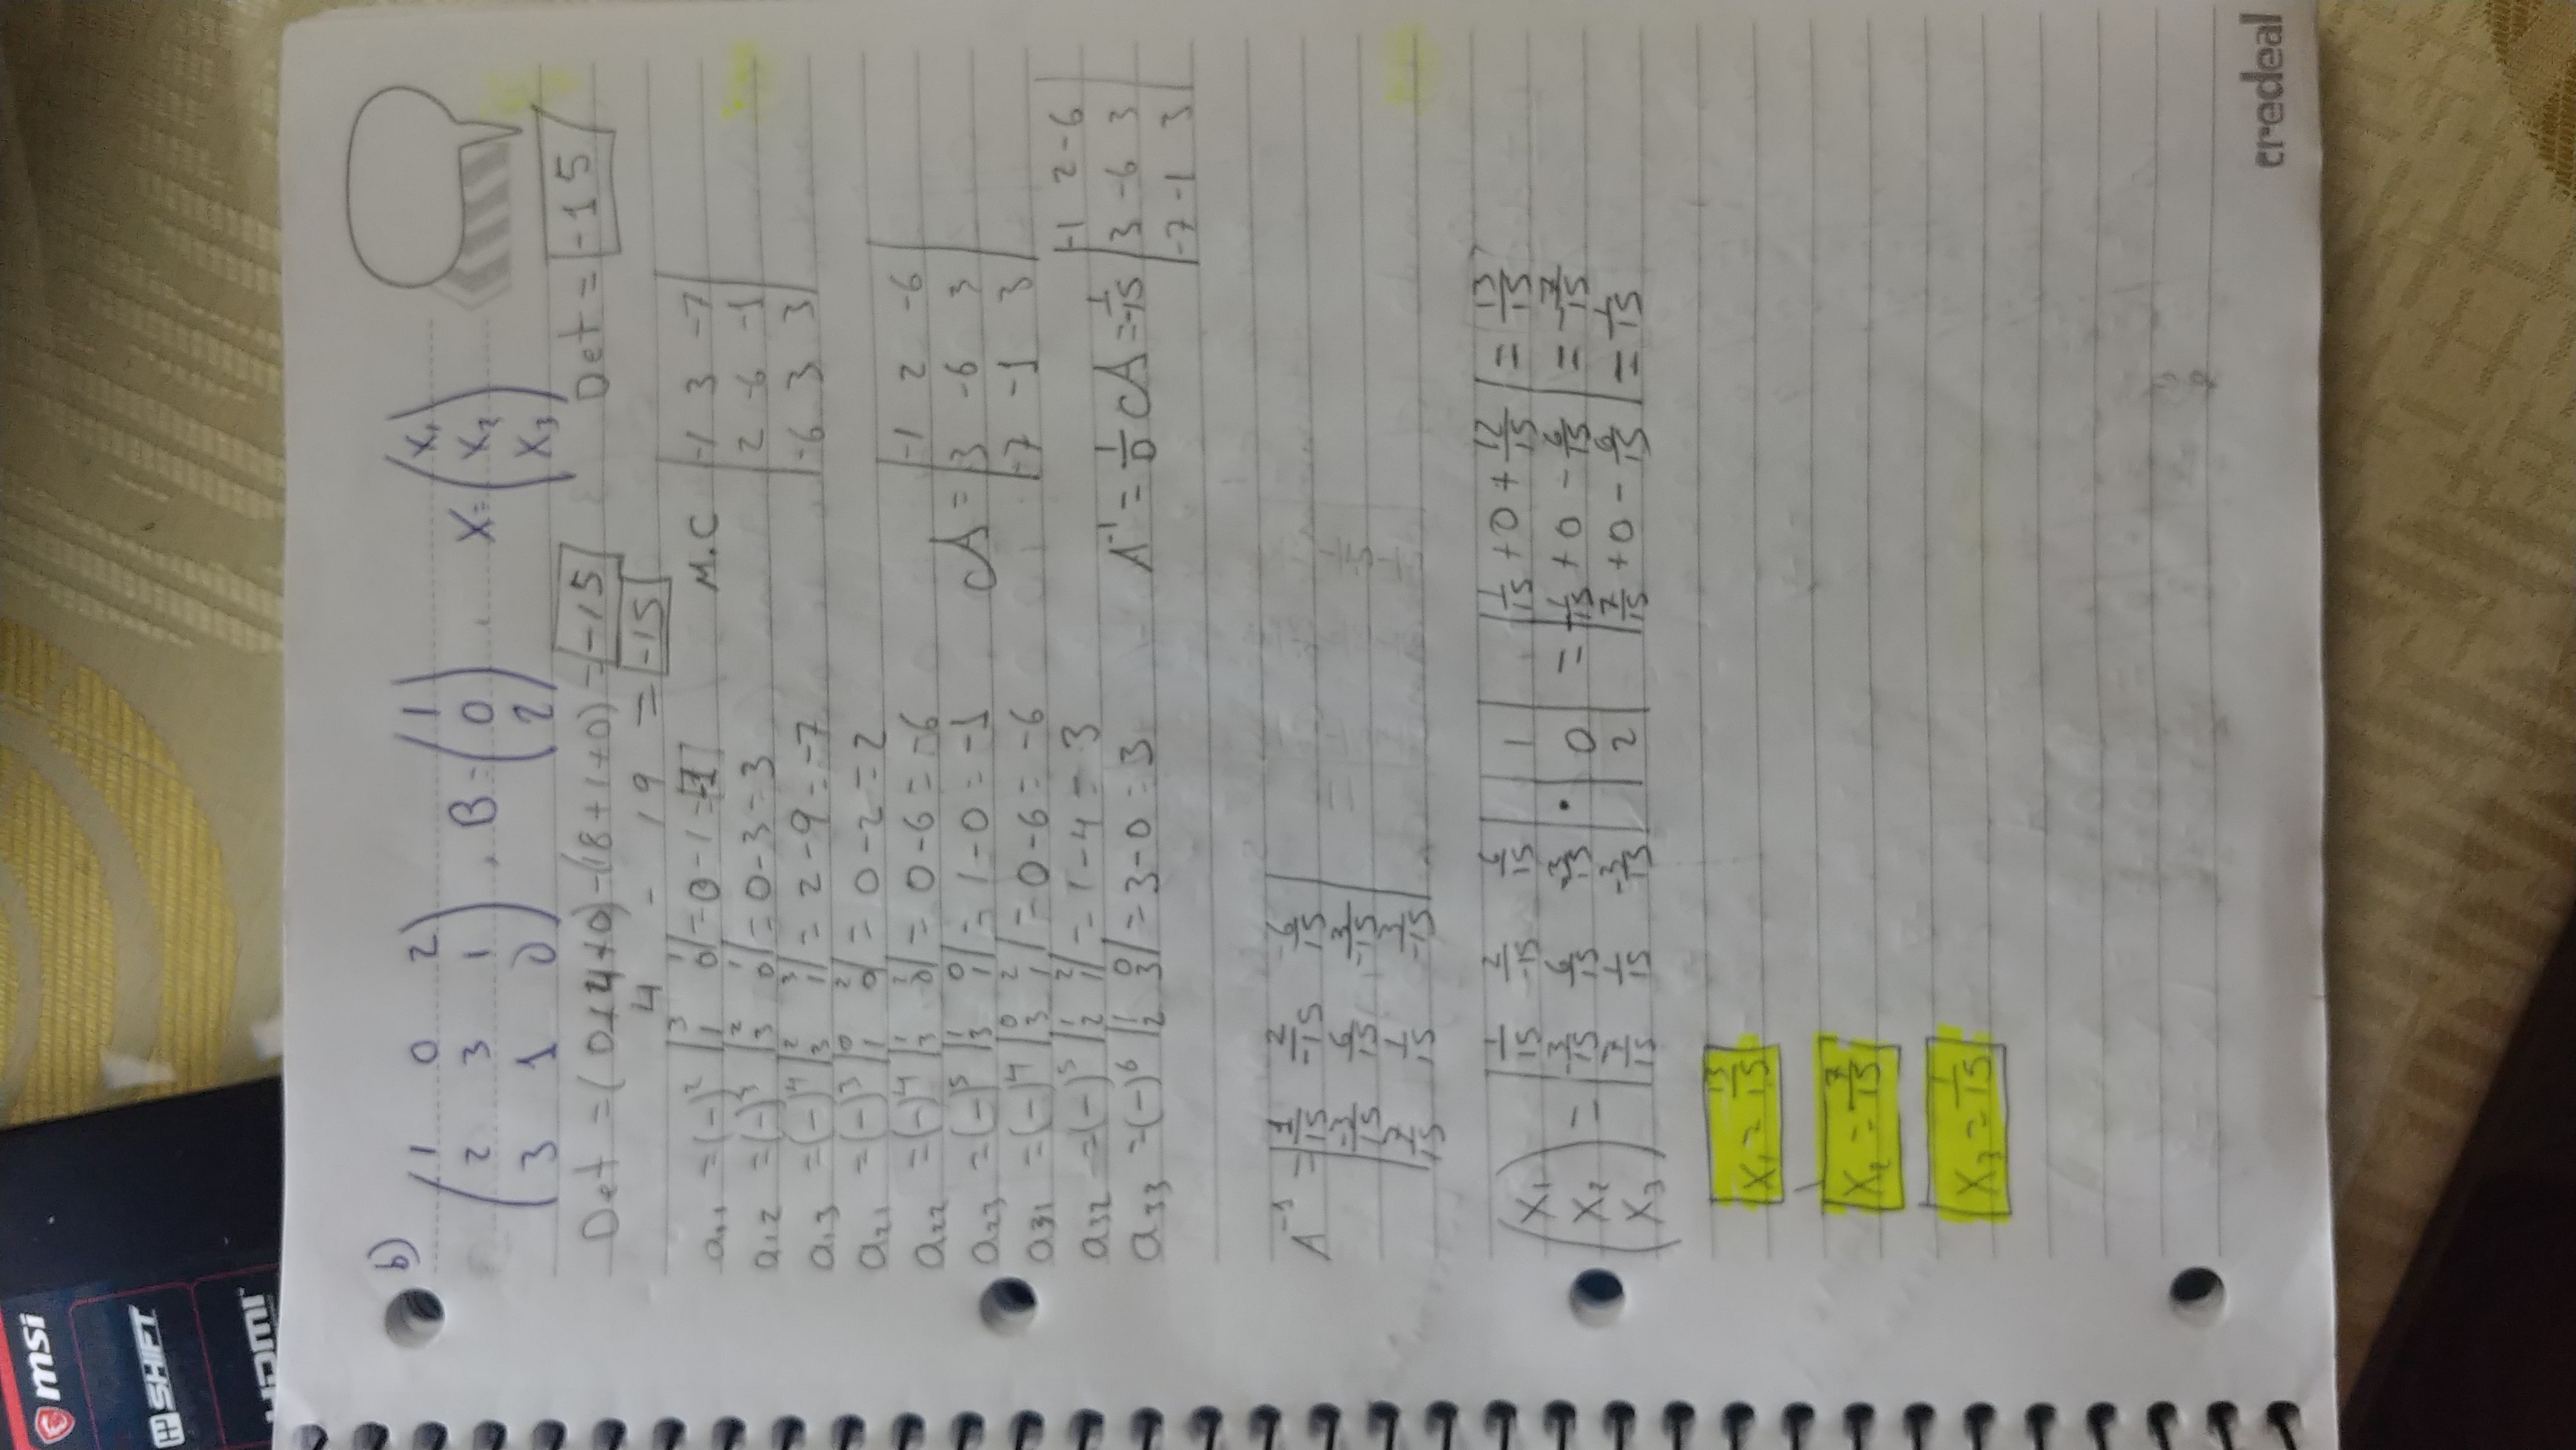 msi
SHIFT
HDMI
b)
( 1 0 2 ) ( 1 ) ( X₁ )
( 2 3 1 ) , B = ( 0 ) , X = ( X₂ )
( 3 1 0 ) ( 2 ) ( X₃ )
Det = (0+4+0) - (18+1+0) = -15 Det = -15
4 - 19 = -15
a₁₁ = (-)² |3 1; 1 0| = 0 - 1 = -1
a₁₂ = (-)³ |2 1; 3 0| = 0 - 3 = 3
a₁₃ = (-)⁴ |2 3; 3 1| = 2 - 9 = -7
a₂₁ = (-)³ |0 2; 1 0| = 0 - 2 = 2
a₂₂ = (-)⁴ |1 2; 3 0| = 0 - 6 = -6
a₂₃ = (-)⁵ |1 0; 3 1| = 1 - 0 = -1
a₃₁ = (-)⁴ |0 2; 3 1| = 0 - 6 = -6
a₃₂ = (-)⁵ |1 2; 2 1| = 1 - 4 = 3
a₃₃ = (-)⁶ |1 0; 2 3| = 3 - 0 = 3
M.C | -1 3 -7 |
| 2 -6 -1 |
| -6 3 3 |
| -1 2 -6 |
cA = | 3 -6 3 |
| -7 -1 3 |
| -1 2 -6 |
A⁻¹ = 1/D cA = 1/-15 | 3 -6 3 |
| -7 -1 3 |
A⁻¹ = | 1/15 2/-15 6/15 |
| -3/15 6/15 3/-15 |
| 7/15 1/15 3/-15 |
( X₁ ) | 1/15 2/-15 6/15 | | 1 | | 1/15 + 0 + 12/15 | = 13/15
( X₂ ) = | -3/15 6/15 -3/15 | • | 0 | = | 1/15 + 0 - 6/15 | = -7/15
( X₃ ) | 7/15 1/15 -3/15 | | 2 | | 7/15 + 0 - 6/15 | = 1/15
X₁ = 13/15
X₂ = -7/15
X₃ = 1/15
credeal